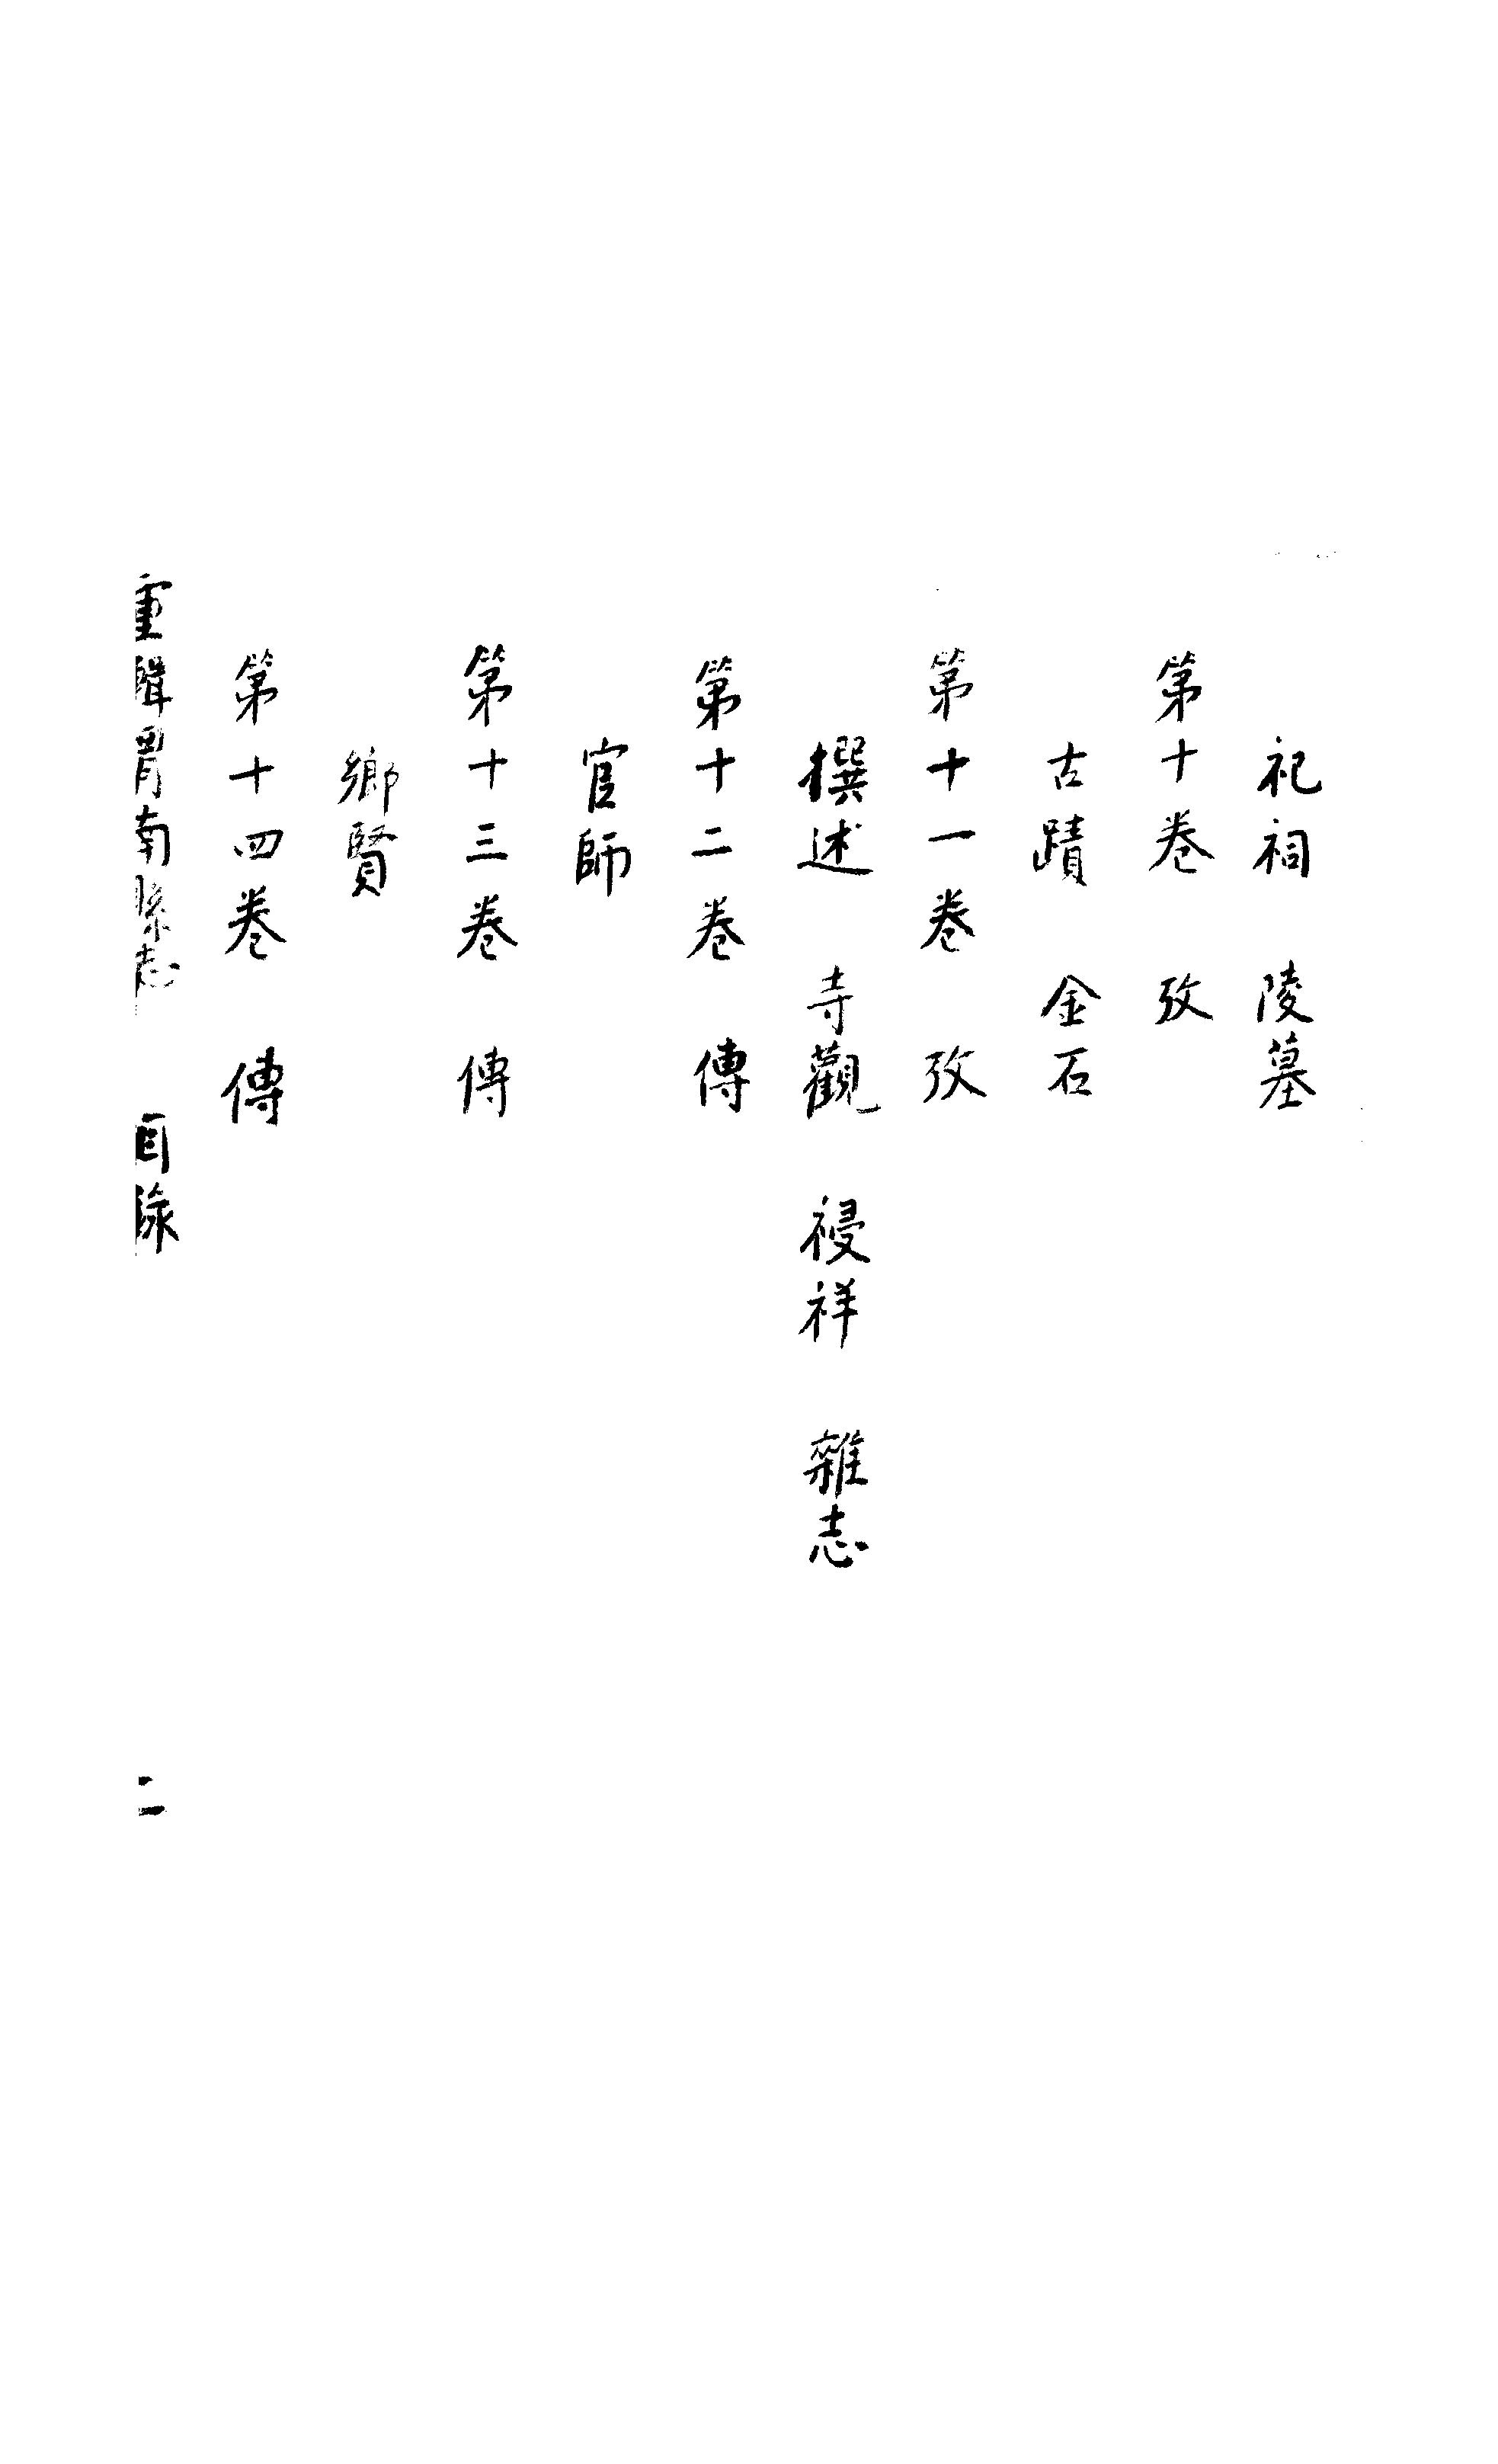 祀祠　陵墓
第十卷　攷
古蹟　金石
第十一卷　攷
撰述　寺觀　祲祥　雜志
第十二卷　傳
官師
第十三卷　傳
鄉賢
第十四卷　傳
重輯渭南縣志　目錄　二